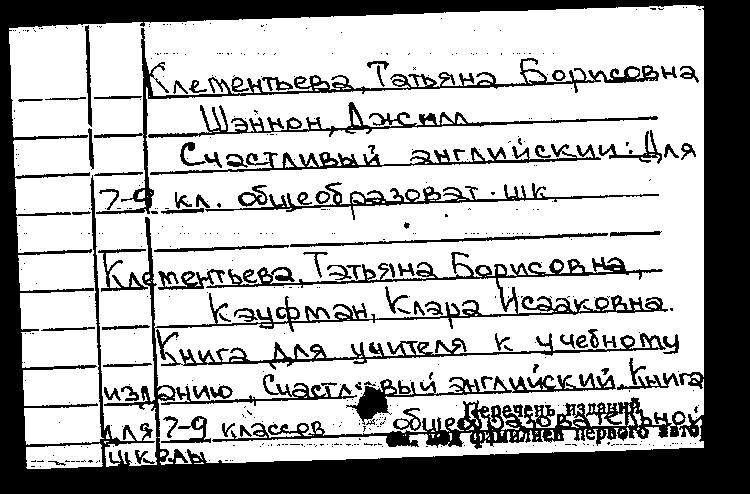 Клементьева, Татьяна Борисовна
Шэннон, Джилл
Счастливый английский: Для
7-9 кл. общеобразоват. шк.
Клементьева, Татьяна Борисовна,
Кауфман, Клара Исааковна.
Книга для учителя к учебному
изданию „Счастливый английский. Книга
для 7-9 классов общеобразовательной
Перечень изданий
см. под фамилией первого автор
школы.